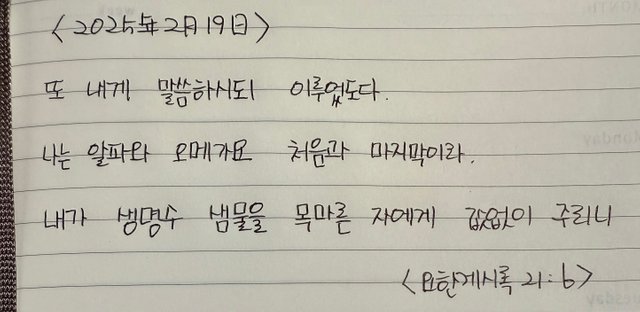 <2025年2月19日>
또 내게 말씀하시되 이루었도다.
나는 알파와 오메가요 처음과 마지막이라.
내가 생명수 샘물을 목마른 자에게 값없이 주리니
<요한계시록 21:6>